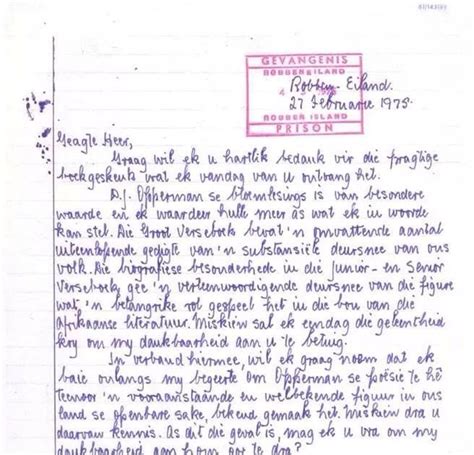 GEVANGENIS
ROBBENEILAND
Robben-Eiland.
27 Februarie 1975.
ROBBEN ISLAND
PRISON
Geagte Heer,
Graag wil ek u hartlik bedank vir die pragtige
boekgeskenk wat ek vandag van u ontvang het.
D.J. Opperman se bloemlesings is van besondere
waarde en ek waardeer hulle meer as wat ek in woorde
kan stel. Die Groot Verseboek bevat 'n omvattende aantal
uiteenlopende gedigte van 'n substansiële deursnee van ons
volk. Die biografiese besonderhede in die Junior- en Senior
Verseboek gee 'n verteenwoordigende deursnee van die figure
wat 'n belangrike rol gespeel het in die bou van die
Afrikaanse literatuur. Miskien sal ek eendag die geleentheid
kry om my dankbaarheid aan u te betuig.
In verband hiermee, wil ek graag noem dat ek
baie onlangs my begeerte om Opperman se poësie te hê
teenoor 'n vooraanstaande en welbekende figuur in ons
land se openbare sake, bekend gemaak het. Miskien dra u
daarvan kennis. As dit die geval is, mag ek u vra om my
dankbaarheid aan hom oor te dra?